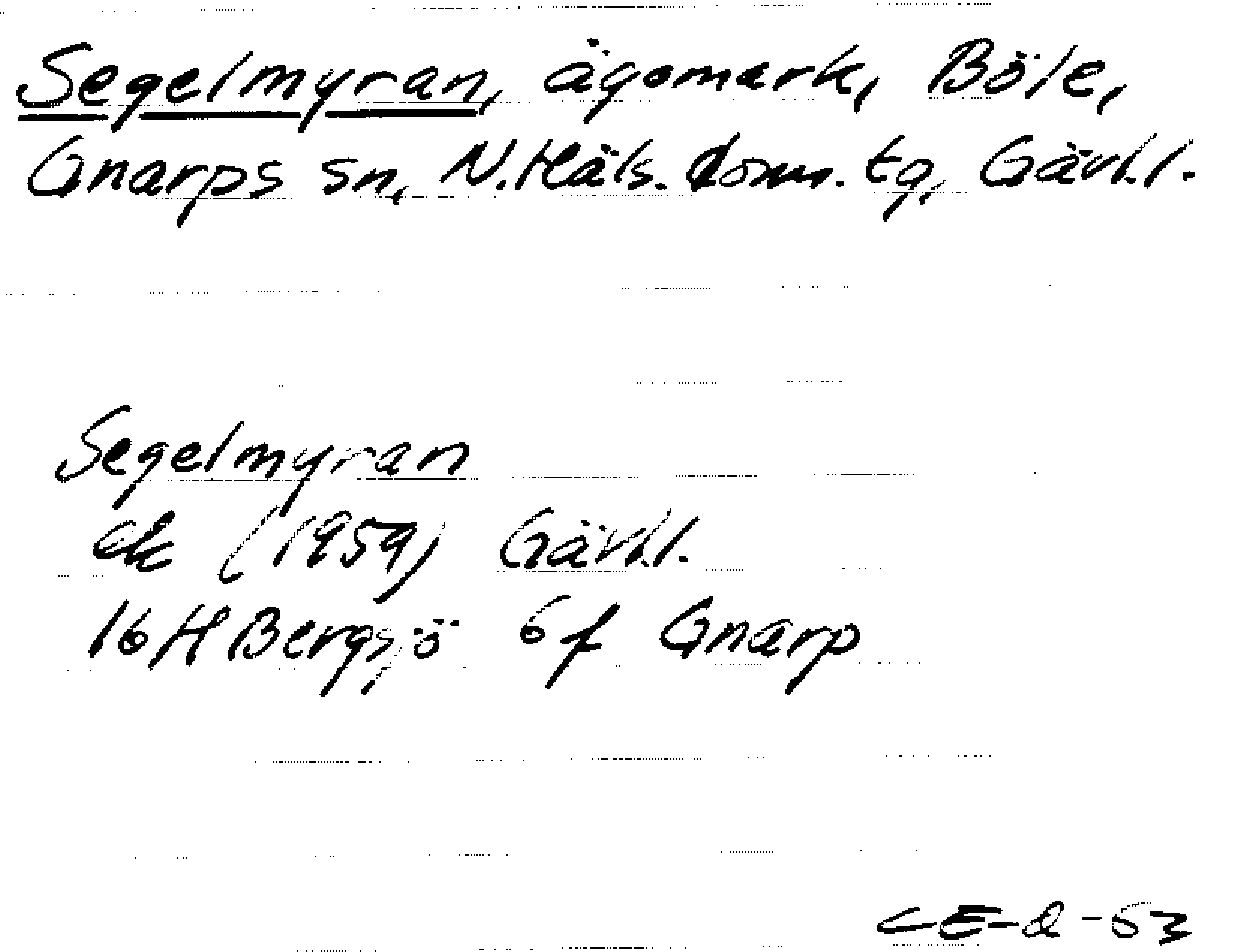 Segelmyran, ägomark, Böle,
Gnarps sn, N.Häls. doms. tg, Gävl.l.
Segelmyran
ek (1959) Gävl.l.
16H Bergsjö 6f Gnarp